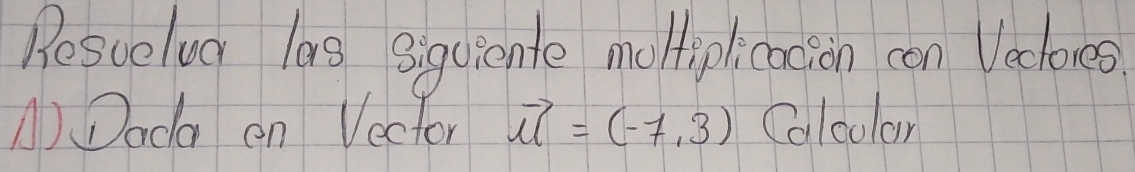 Resuelva las siguiente multiplicación con Vectores.
A) Dada en Vector u⃗ = (-7,3) Calcular